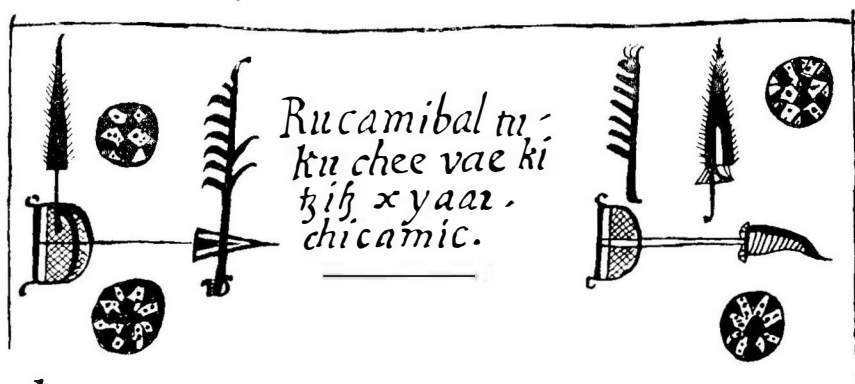 Rucamibal tu-
ku chee vae ki
ꜩih x yaar .
chicamic.